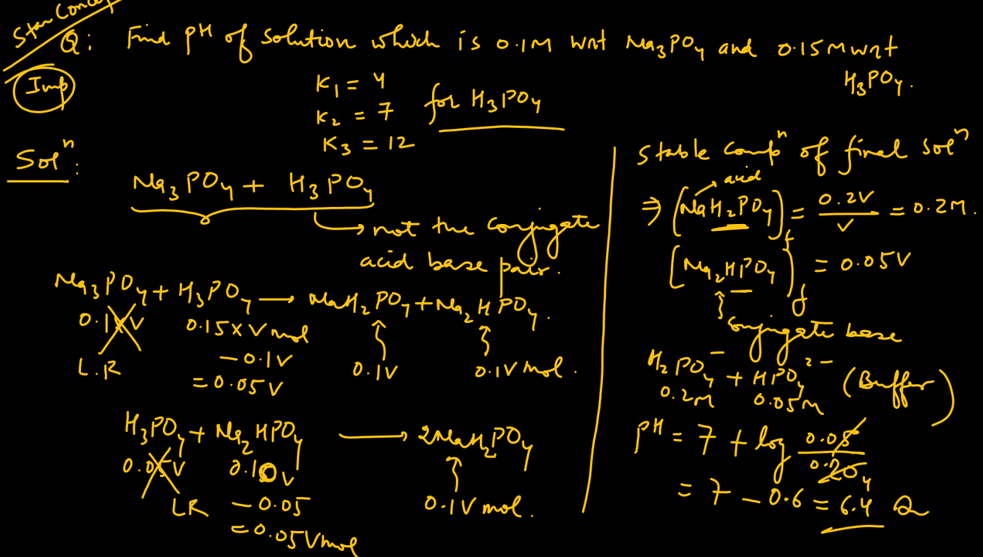 Star Concept
Q: Find pH of solution which is 0.1M wrt Na₃PO₄ and 0.15M wrt
H₃PO₄.
Imp
K₁ = 4
K₂ = 7
K₃ = 12
for H₃PO₄
Solⁿ:
Na₃PO₄ + H₃PO₄
→ not the conjugate
acid base pair.
Na₃PO₄ + H₃PO₄ → NaH₂PO₄ + Na₂HPO₄.
0.1×V 0.15×V mol 0.1V 0.1V mol.
L.R – 0.1V
= 0.05V
H₃PO₄ + Na₂HPO₄ → 2NaH₂PO₄
0.05V 0.10V 0.1V mol.
LR – 0.05
= 0.05V mol
Stable Compⁿ of final Solⁿ
acid
⇒ [NaH₂PO₄]f = 0.2V/V = 0.2M.
[Na₂HPO₄]f = 0.05V
Conjugate base
H₂PO₄⁻ + HPO₄²⁻ (Buffer)
0.2M 0.05M
pH = 7 + log 0.05/0.20 4
= 7 – 0.6 = 6.4